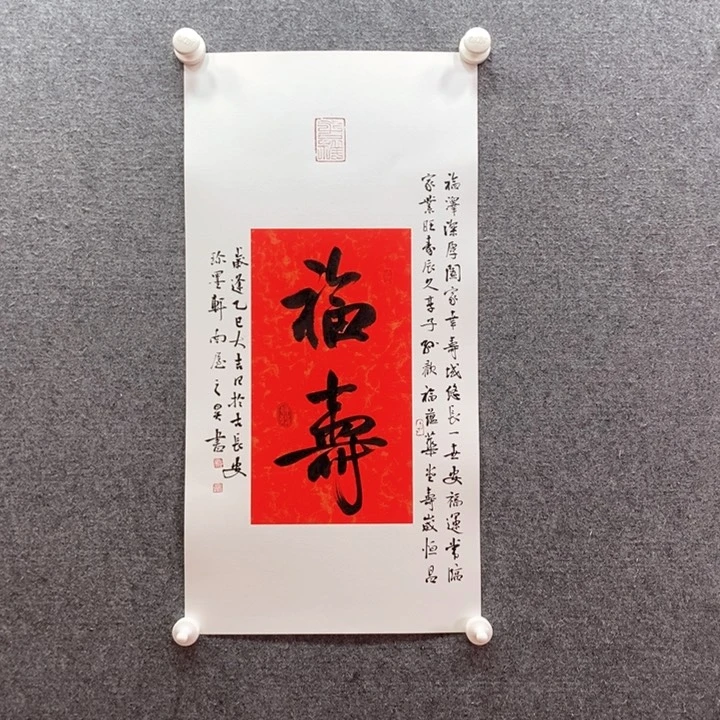 福澤深厚闔家幸壽域悠長一世安福運常臨
家業旺壽辰久享子孫歡福蘊華堂壽歲恒昌
福壽
歲逢乙巳大吉日於古長安
墨軒之昊書